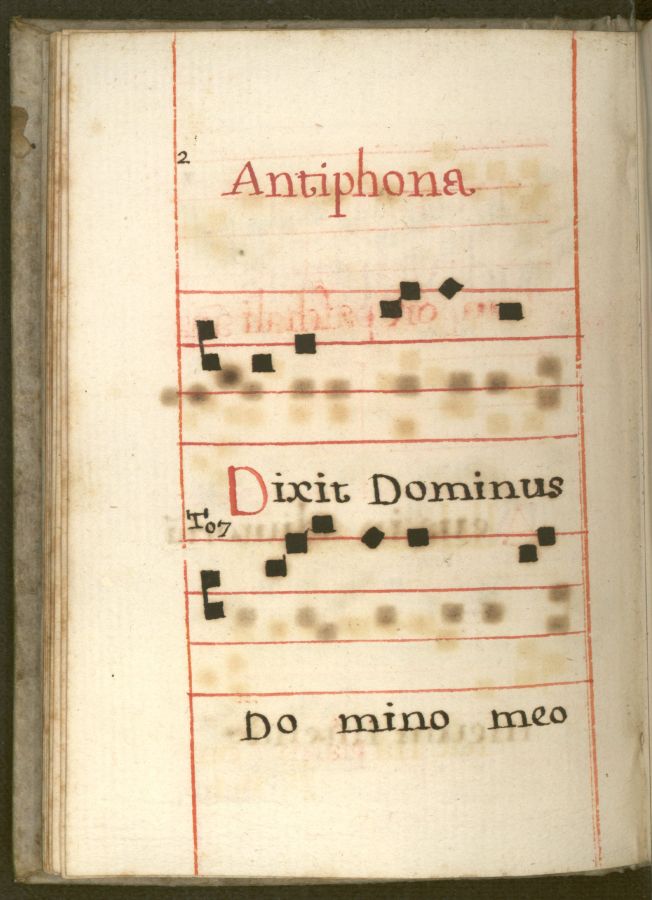 2
Antiphona
Dixit Dominus
To7
Do mino meo